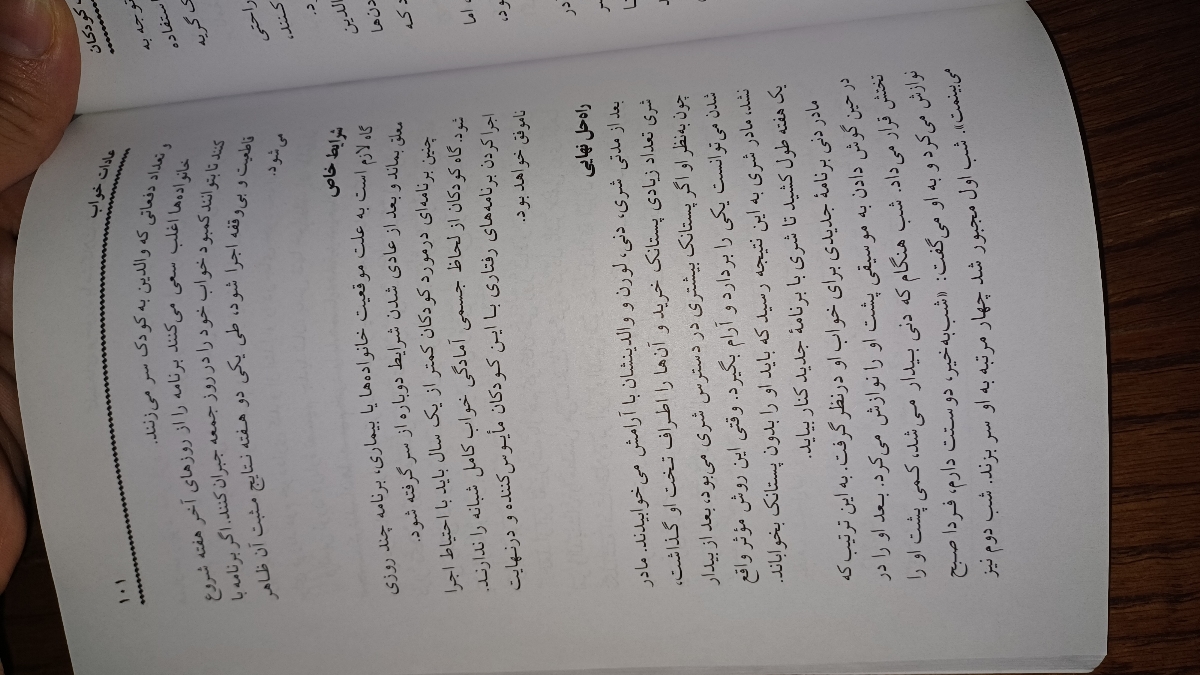 عادات خواب
۱۰۱
و تعداد دفعاتی که والدین به کودک سر می‌زنند.
خانواده‌ها اغلب سعی می‌کنند برنامه را از روزهای آخر هفته شروع
کنند تا بتوانند کمبود خواب خود را در روز جمعه جبران کنند. اگر برنامه با
قاطعیت و بی‌وقفه اجرا شود، طی یکی دو هفته نتایج مثبت آن ظاهر
می‌شود.
شرایط خاص
گاه لازم است به علت موقعیت خانواده‌ها یا بیماری، برنامه چند روزی
معلق بماند و بعد از عادی شدن شرایط دوباره از سر گرفته شود.
چنین برنامه‌ای درمورد کودکان کمتر از یک سال باید با احتیاط اجرا
شود. گاه کودکان از لحاظ جسمی آمادگی خواب کامل شبانه را ندارند.
اجرا کردن برنامه‌های رفتاری با این کودکان مأیوس‌کننده و درنهایت
ناموفق خواهد بود.
راه‌حل نهایی
بعد از مدتی شری، دنی، لورن و والدینشان با آرامش می‌خوابیدند. مادر
شری تعداد زیادی پستانک خرید و آن‌ها را اطراف تخت او گذاشت،
چون به‌نظر او اگر پستانک بیشتری در دسترس شری می‌بود، بعد از بیدار
شدن می‌توانست یکی را بردارد و آرام بگیرد. وقتی این روش مؤثر واقع
نشد، مادر شری به این نتیجه رسید که باید او را بدون پستانک بخواباند.
یک هفته طول کشید تا شری با برنامهٔ جدید کنار بیاید.
مادر دنی برنامهٔ جدیدی برای خواب او درنظر گرفت. به این ترتیب که
در حین گوش دادن به موسیقی پشت او را نوازش می‌کرد. بعد او را در
تختش قرار می‌داد. شب هنگام که دنی بیدار می‌شد، کمی پشت او را
نوازش می‌کرد و به او می‌گفت: «شب‌به‌خیر، دوستت دارم، فردا صبح
می‌بینمت». شب اول مجبور شد چهار مرتبه به او سر بزند. شب دوم نیز